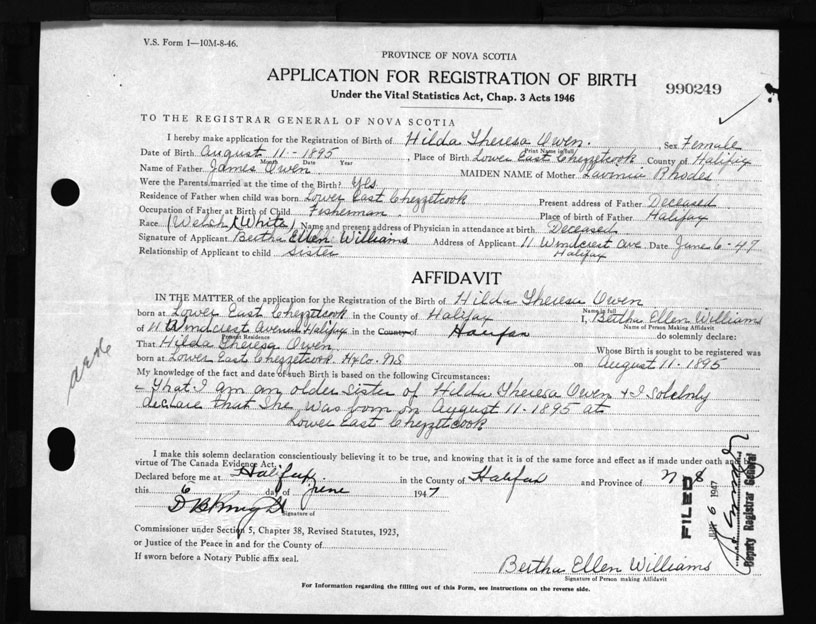 V.S. Form 1—10M-8-46.
PROVINCE OF NOVA SCOTIA
APPLICATION FOR REGISTRATION OF BIRTH
990249
Under the Vital Statistics Act, Chap. 3 Acts 1946
TO THE REGISTRAR GENERAL OF NOVA SCOTIA
I hereby make application for the Registration of Birth of Hilda Theresa Owen. , Sex Female
Print Name in full
Date of Birth August 11 - 1895 , Place of Birth Lower East Chezzetcook County of Halifax
Month Date Year
Name of Father James Owen MAIDEN NAME of Mother Lavinia Rhodes
Were the Parents married at the time of the Birth? Yes
Residence of Father when child was born Lower East Chezzetcook Present address of Father Deceased
Occupation of Father at Birth of Child Fisherman . Place of birth of Father Halifax
Race (Welsh) (White) Name and present address of Physician in attendance at birth Deceased
Signature of Applicant Bertha Ellen Williams Address of Applicant 11 Windcrest Ave. Date June 6-47
Halifax
Relationship of Applicant to child Sister
AFFIDAVIT
IN THE MATTER of the application for the Registration of the Birth of Hilda Theresa Owen
Name in full
born at Lower East Chezzetcook in the County of Halifax I, Bertha Ellen Williams
Name of Person Making Affidavit
of 11 Windcrest Avenue Halifax in the County of Halifax do solemnly declare:
Present Residence
That Hilda Theresa Owen Whose Birth is sought to be registered was
born at Lower East Chezzetcook Hx Co. N.S. on August 11-1895
My knowledge of the fact and date of such Birth is based on the following Circumstances:
- That I am an older sister of Hilda Theresa Owen & I solebnly
declare that she was born on August 11-1895 at
Lower East Chezzetcook
I make this solemn declaration conscientiously believing it to be true, and knowing that it is of the same force and effect as if made under oath and
virtue of The Canada Evidence Act.
Declared before me at Halifax in the County of Halifax and Province of N S
this 6 day of June 1947
D B Knight
Signature of
Commissioner under Section 5, Chapter 38, Revised Statutes, 1923,
or Justice of the Peace in and for the County of
If sworn before a Notary Public affix seal.
FILED
6 1947
Deputy Registrar General
Bertha Ellen Williams
Signature of Person making Affidavit
For Information regarding the filling out of this Form, see instructions on the reverse side.